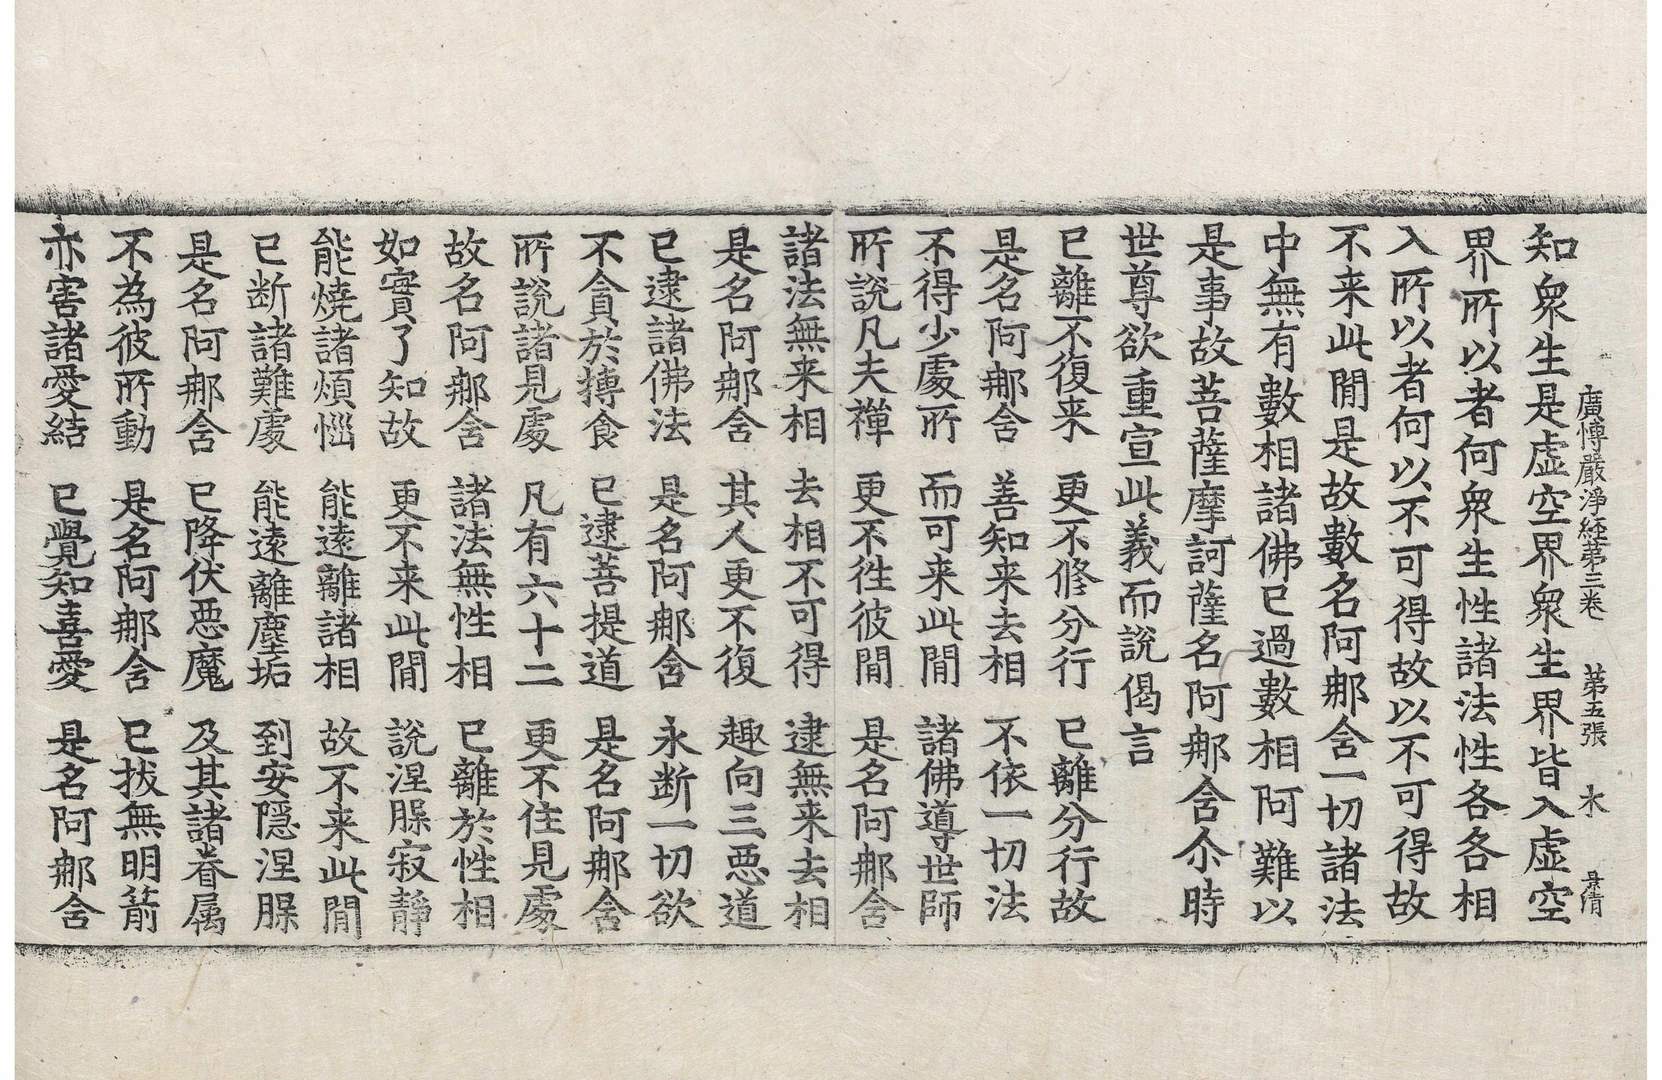 廣愽嚴淨經第三卷　第五張　木
知衆生是虛空界衆生界皆入虛空
界所以者何衆生性諸法性各各相
入所以者何以不可得故以不可得故
不来此閒是故數名阿那含一切諸法
中無有數相諸佛已過數相阿難以
是事故菩薩摩訶薩名阿那含尒時
世尊欲重宣此義而說偈言
已離不復来　更不修分行　已離分行故
是名阿那含　善知来去相　不依一切法
不得少處所　而可来此閒　諸佛導世師
所說凡夫禪　更不徃彼閒　是名阿那含
諸法無来相　去相不可得　逮無来去相
是名阿那含　其人更不復　趣向三惡道
已逮諸佛法　是名阿那含　永断一切欲
不貪於摶食　已逮菩提道　是名阿那含
所說諸見處　凡有六十二　更不住見處
故名阿那含　諸法無性相　已離於性相
如實了知故　更不来此閒　說涅槃寂靜
能燒諸煩惱　能遠離諸相　故不来此閒
已断諸難處　能遠離塵垢　到安隱涅槃
是名阿那含　已降伏惡魔　及其諸眷属
不為彼所動　是名阿那含　已拔無明箭
亦害諸愛結　已覺知喜愛　是名阿那含